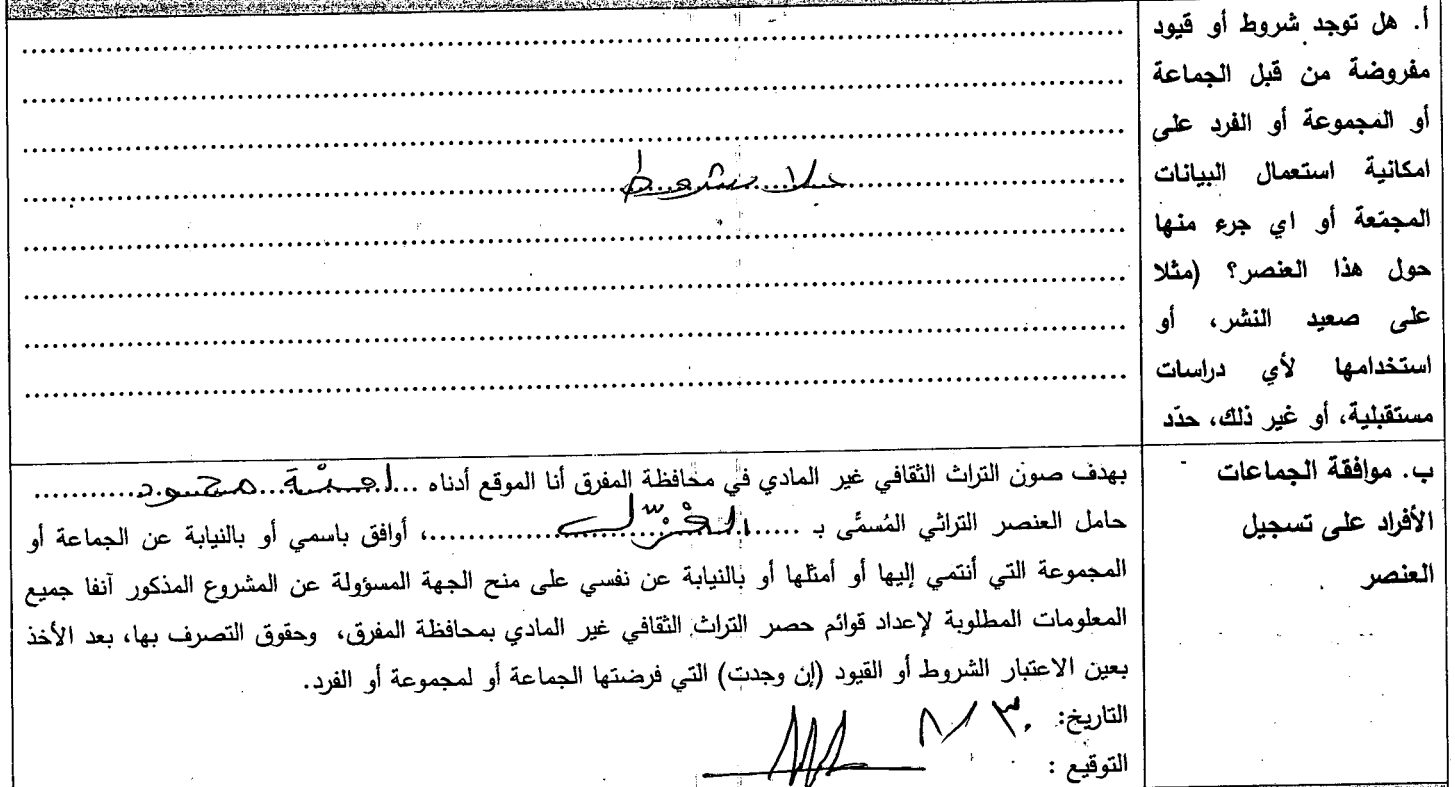 أ. هل توجد شروط أو قيود
مفروضة من قبل الجماعة
أو المجموعة أو الفرد على
امكانية استعمال البيانات
المجمّعة أو اي جرء منها
حول هذا العنصر؟ (مثلا
على صعيد النشر، أو
استخدامها لأي دراسات
مستقبلية، أو غير ذلك، حدّد
بلا شروط
ب. موافقة الجماعات
الأفراد على تسجيل
العنصر
بهدف صون التراث الثقافي غير المادي في محافظة المفرق أنا الموقع أدناه ...امنة محمود...
حامل العنصر التراثي المُسمَّى بـ ...الغزل...، أوافق باسمي أو بالنيابة عن الجماعة أو
المجموعة التي أنتمي إليها أو أمثلها أو بالنيابة عن نفسي على منح الجهة المسؤولة عن المشروع المذكور آنفا جميع
المعلومات المطلوبة لإعداد قوائم حصر التراث الثقافي غير المادي بمحافظة المفرق، وحقوق التصرف بها، بعد الأخذ
بعين الاعتبار الشروط أو القيود (إن وجدت) التي فرضتها الجماعة أو لمجموعة أو الفرد.
التاريخ: ٣٠ / ٨
التوقيع :